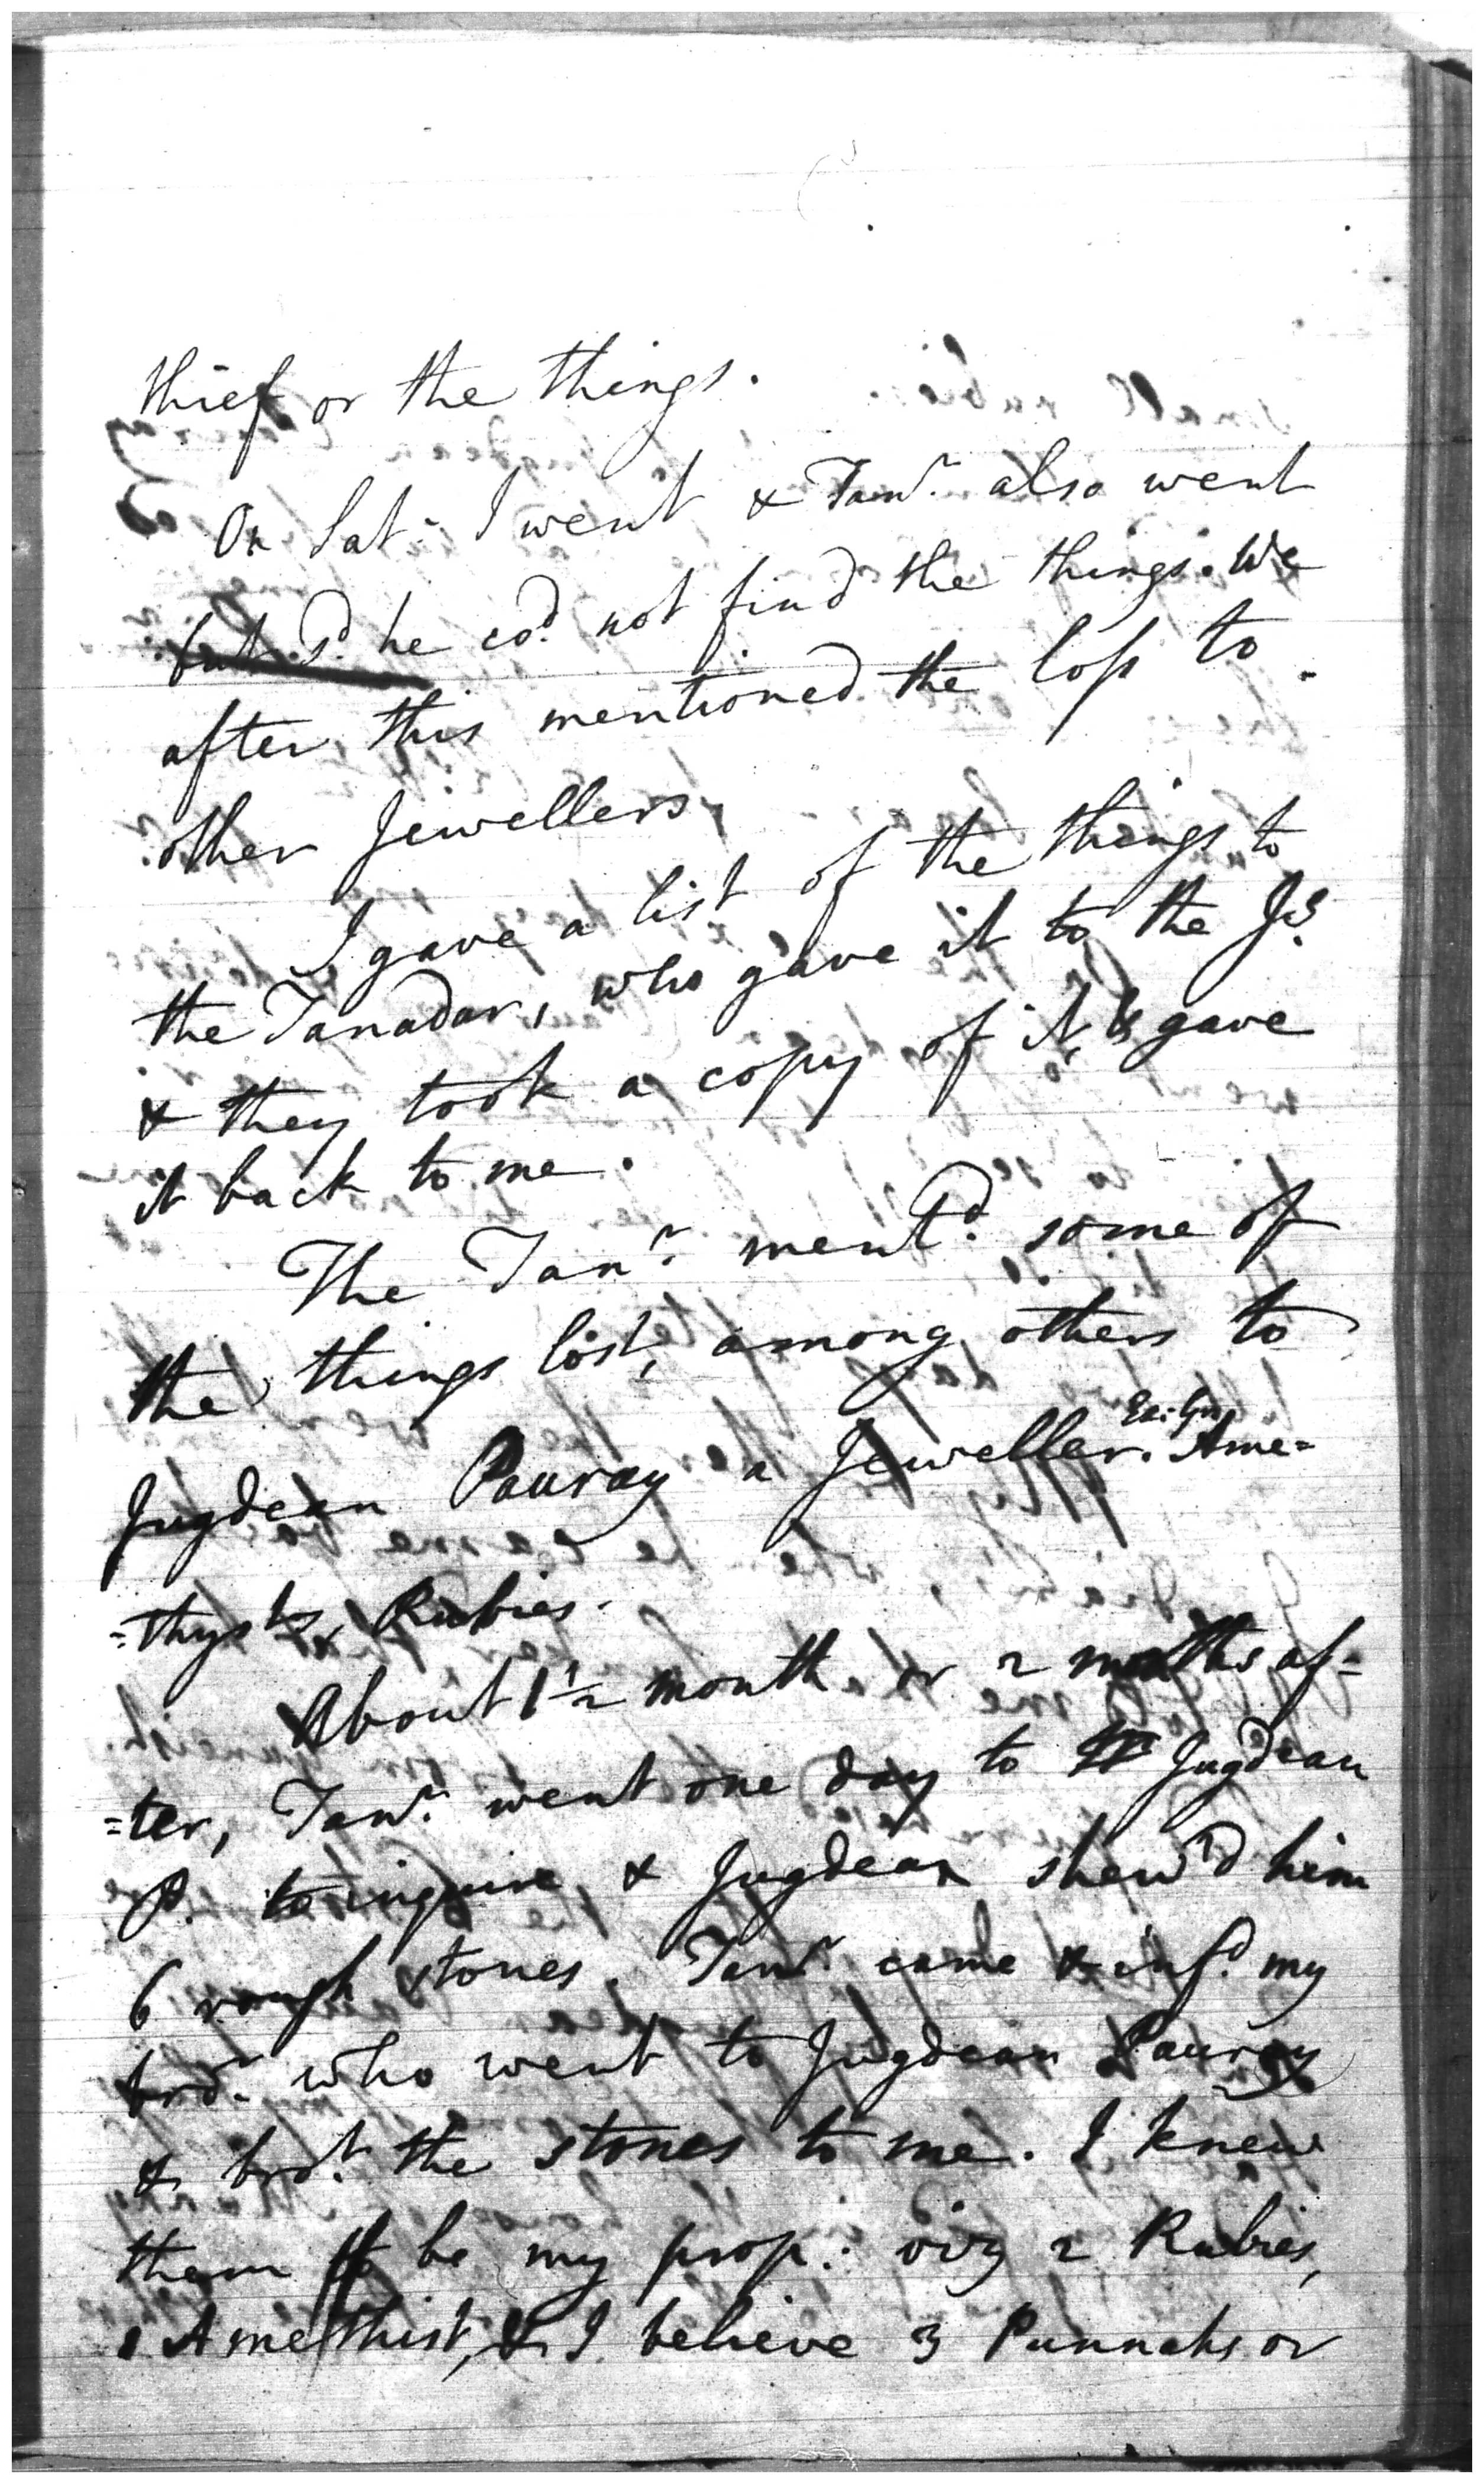 thief or the things.
On Sat: I went & Tanr. also went
but sd. he cod. not find the things. We
after this mentioned the loss to
other Jewellers.
I gave a list of the things to
the Tanadar, who gave it to the Js.
& they took a copy of it, & gave
it back to me.
The Tanr. mentd. some of
the things lost, among others to
Jugdean Pauray a Jeweller. Ame=
=thysts & Rubies.
About 1½ month or 2 months af=
=ter, Tanr. went one day to Jugdean
P. to inquire, & Jugdean shew'd him
6 rough stones. Tanr. came & infd. my
bror. who went to Jugdean Pauray
& brot. the stones to me. I knew
them to be my prop: viz 2 Rubies,
1 Amethist, & I believe 3 Punnahs or